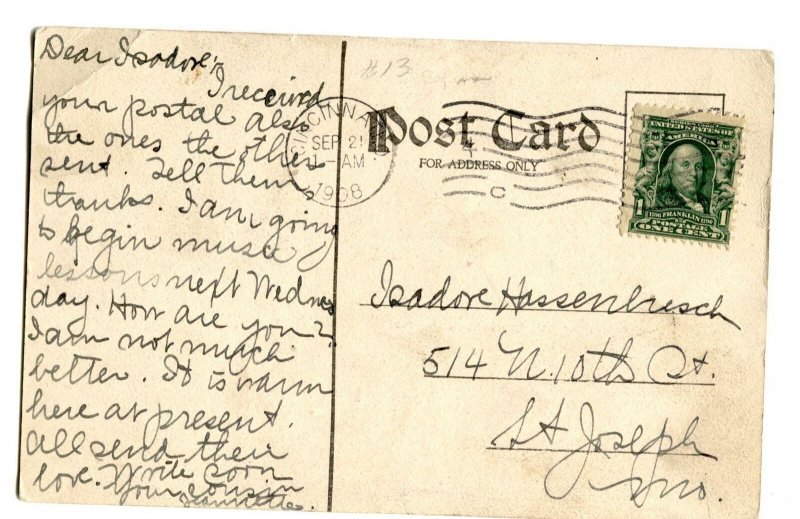 Dear Isadore,
I received
your postal also
the ones the others
sent. Tell them
thanks. I am going
to begin music
lessons next Wednes
day. How are you?
I am not much
better. It is warm
here at present.
All send their
love. Write soon
Your cousin
Jeannette.
#13
CINCINNA
SEP 21
1-AM
1908
C
Post Card
FOR ADDRESS ONLY
UNITED STATES OF
AMERICA
1 1706 FRANKLIN 1790 1
POSTAGE
ONE CENT
Isadore Hassenbusch
514 N. 10th St.
St Joseph
Mo.